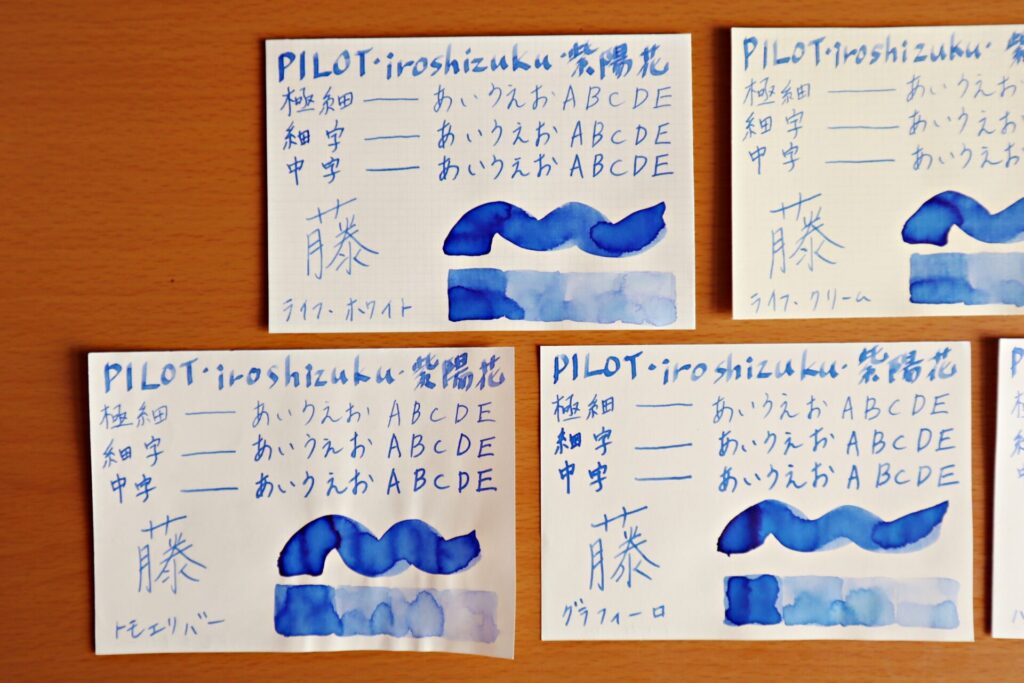 PILOT・iroshizuku・紫陽花
極細 ― あいうえお ABCDE
細字 ― あいうえお ABCDE
中字 ― あいうえお ABCDE
藤
ライフ・ホワイト
PILOT・iroshizuku・
極細 ― あいうえお
細字 ― あいうえお
中字 ― あいうえお
藤
ライフ・クリーム
PILOT・iroshizuku・紫陽花
極細 ― あいうえお ABCDE
細字 ― あいうえお ABCDE
中字 ― あいうえお ABCDE
藤
トモエリバー
PILOT・iroshizuku・紫陽花
極細 ― あいうえお ABCDE
細字 ― あいうえお ABCDE
中字 ― あいうえお ABCDE
藤
グラフィーロ